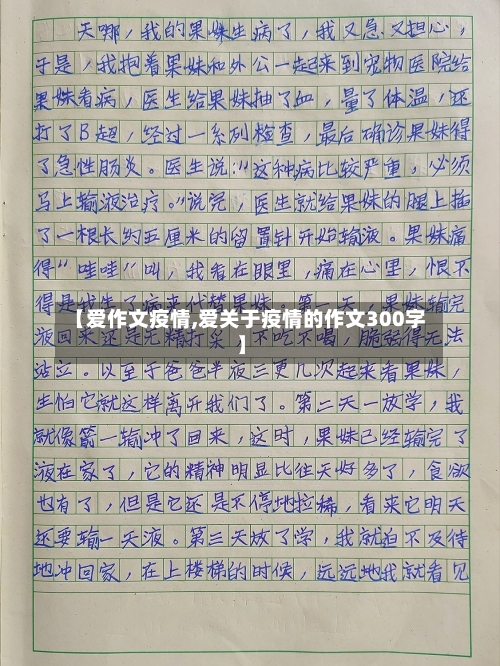 天哪，我的果妹生病了，我又急又担心，
于是，我抱着果妹和外公一起来到宠物医院给
果妹看病，医生给果妹抽了血，量了体温，还
打了B超，经过一系列检查，最后确诊果妹得
了急性肠炎。医生说："这种病比较严重，必须
马上输液治疗。"说完，医生就给果妹的腿上插
了一根长约五厘米的留置针开始输液。果妹痛
得"哇哇"叫，我看在眼里，痛在心里，恨不
得是我生了病来代替果妹。第一天，果妹输完
【爱作文疫情,爱关于疫情的作文300字
】
液回来还是无精打采，不吃不喝，脆弱得无法
站立。以至于爸爸半夜三更几次起来看果妹，
生怕它就这样离开我们了。第二天一放学，我
就像箭一输冲了回来，这时，果妹已经输完了
液在家了，它的精神明显比往天好多了，食欲
也有了，但是它还是不停地拉稀，看来它明天
还要输一天液。第三天放了学，我就迫不及待
地冲回家，在上楼梯的时候，远远地我就看见